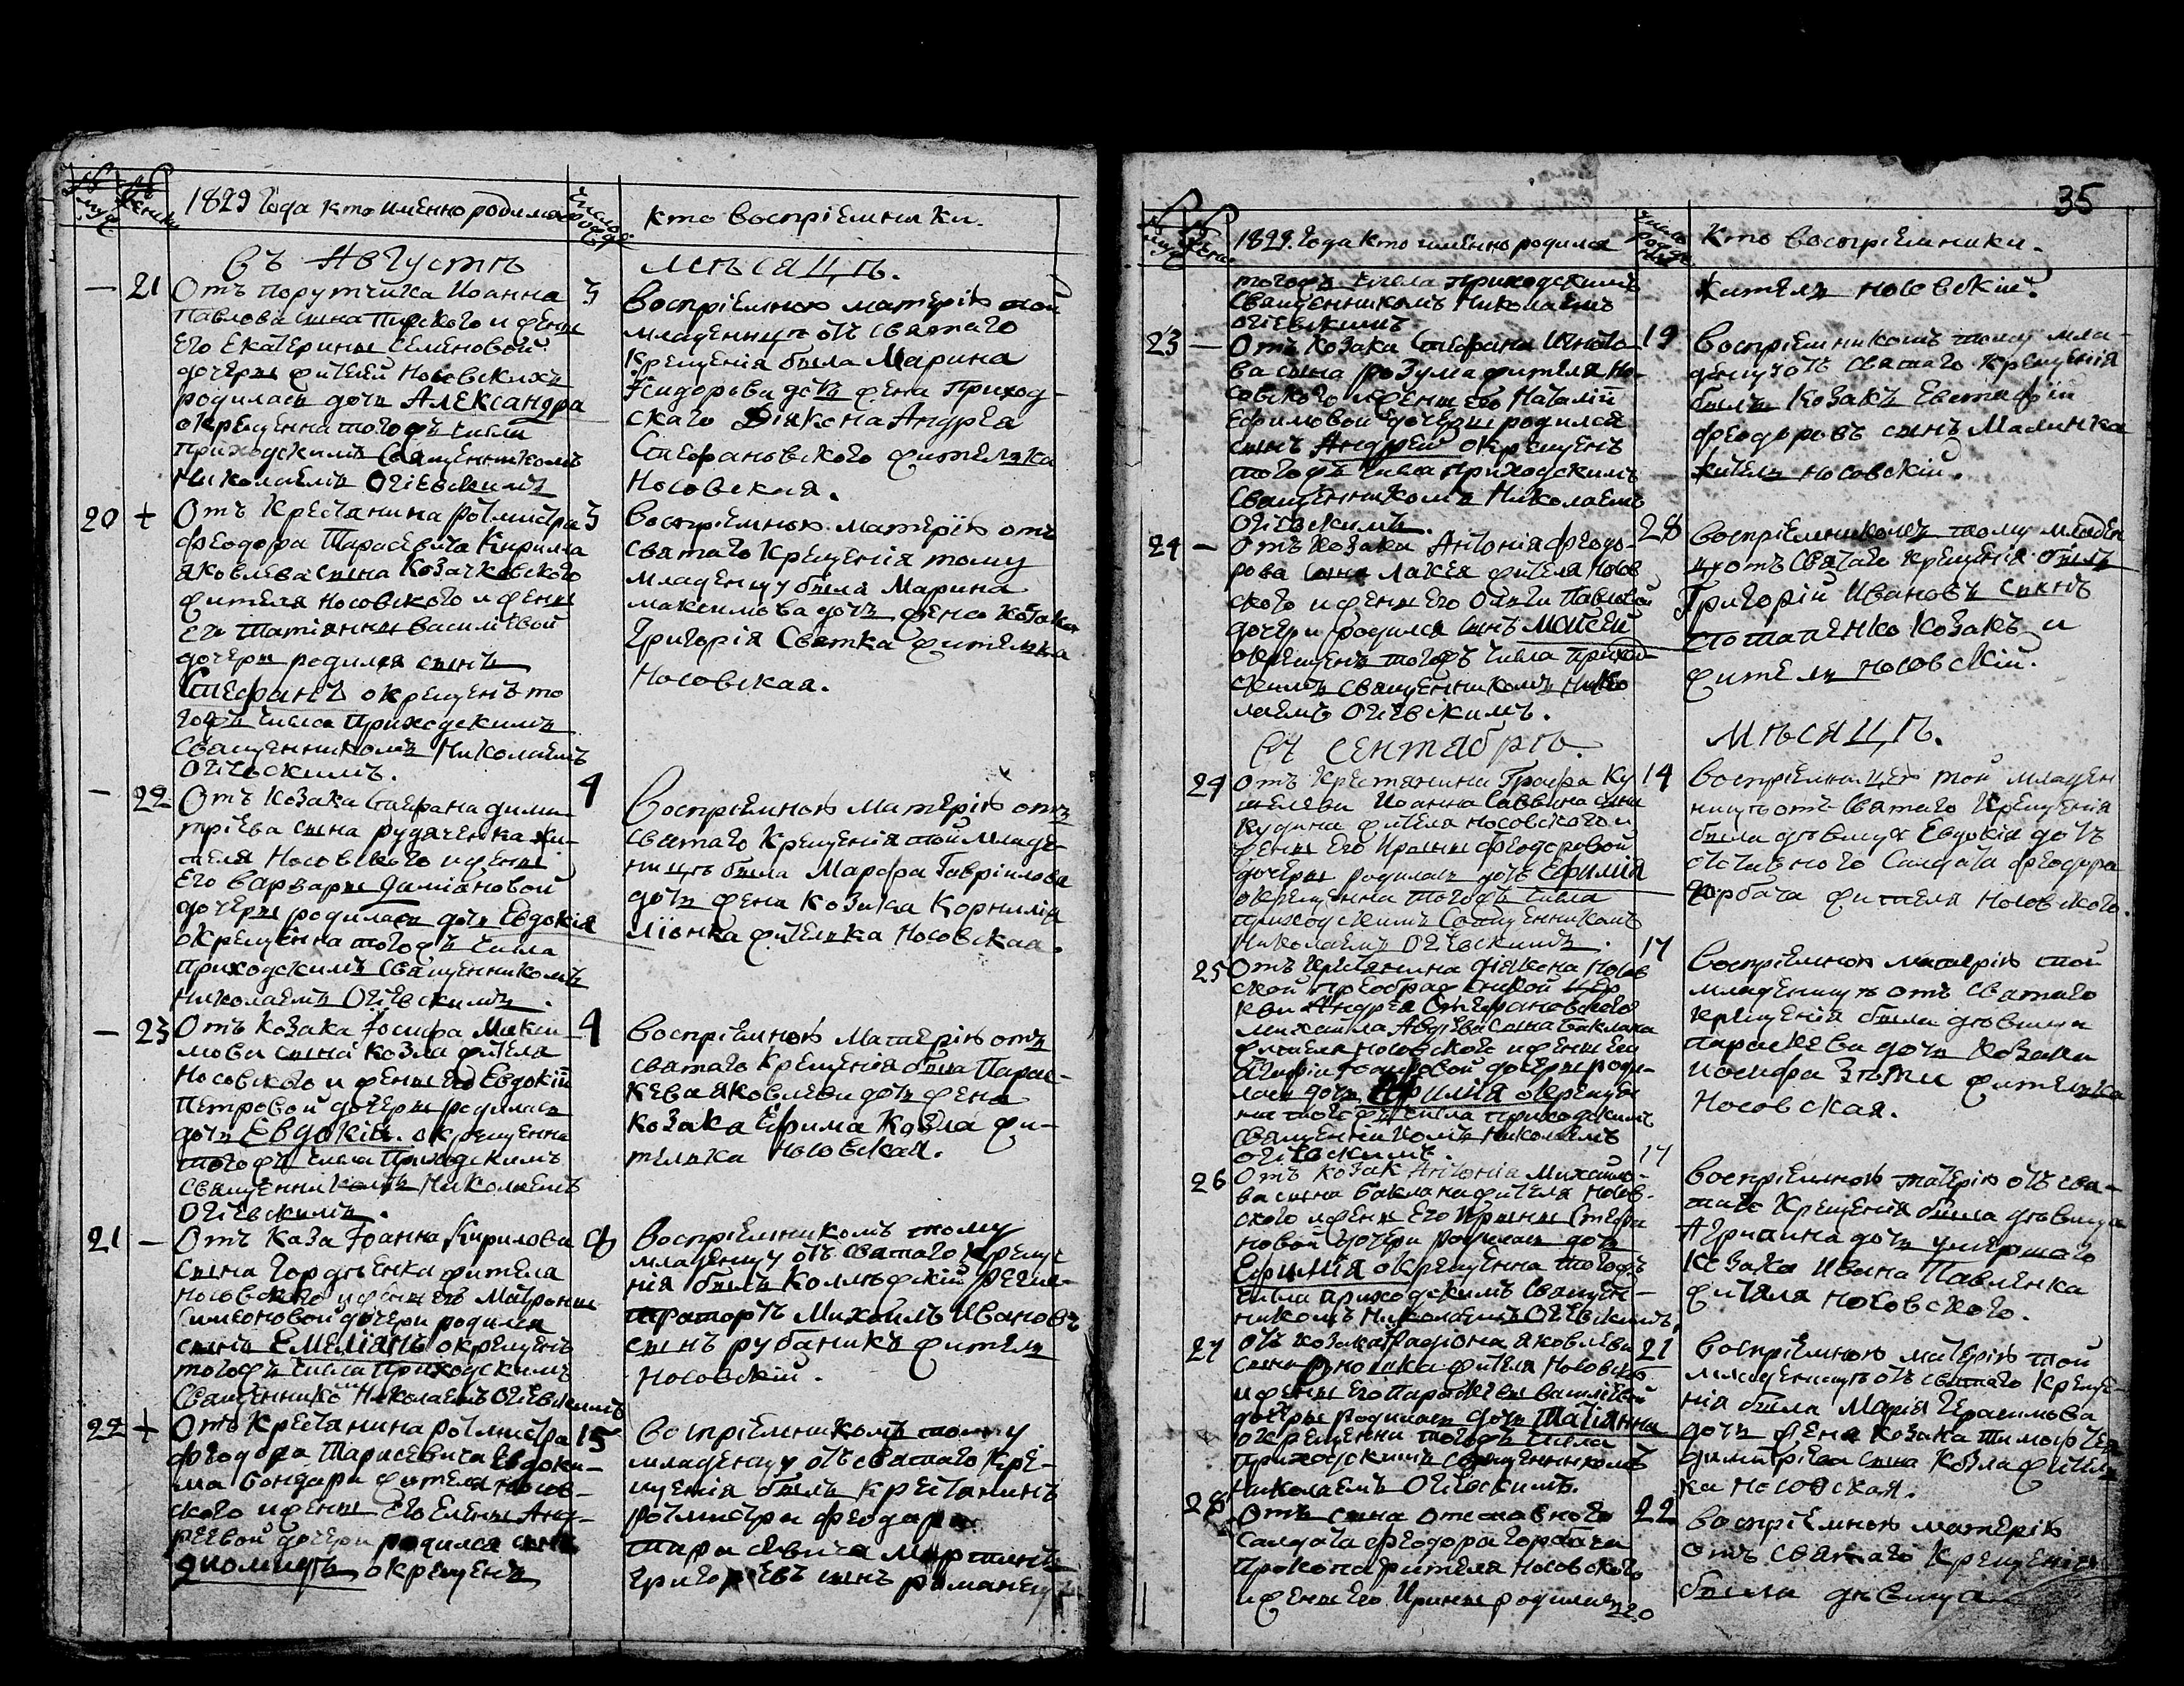 1829 Года кто именно родился
кто воспріемники.
въ Августѣ
мѣсяцѣ.
21
Отъ порутчика Иоанна
Павлова сына Пирского и жены
его Екатерины Семеновой
дочеры жителей Носовскихъ
родилась дочь Александра
окрещенна тогожъ числа
приходскимъ Священникомъ
Николаемъ Огіевскимъ
3
воспріемною матерію той
младенницѣ отъ святаго
Крещенія была Марина
Ісидорова дочь жена приход-
скаго Діякона Андрея
Стефановского жителька
Носовская.
20 +
Отъ Крестянина ротмистра
Феодора Тарасевича Кирилла
Яковлева сына Козачковского
жителя Носовского и жены
его Татіянны Василіевой
дочеры родился сынъ
Стефанъ окрещенъ то
гожъ числа Приходскимъ
Священникомъ Николаемъ
Огіевскимъ.
3
воспріемною матерію отъ
святаго крещенія тому
младенцу была Марина
максимова дочь жена козака
Григорія Святка жителька
Носовская.
22
Отъ Козака Стефана дими-
тріева сына рудяченка жи-
теля Носовского и жены
его варвары Даміановой
дочеры родилась дочь Евдокія
окрещенна тогожъ числа
приходскимъ Священникомъ
Николаемъ Огіевскимъ.
4
Воспріемною матерію отъ
святаго Крещенія той младе-
нницѣ была Марфа Гавріилова
дочь жена козака Корнилія
жителька Носовская.
23
Отъ Козака Іосифа Макси-
мова сына козла жителя
Носовского и жены его Евдокіи
Петровой дочеры родилась
дочь Евдокія. окрещенна
тогожъ числа Приходскимъ
священникомъ Николаемъ
Огіевскимъ.
4
воспріемною Матерію отъ
святаго Крещенія была Парас-
кева яковлева дочь жена
козака Ефима Козла жи-
телька Носовская.
21
Отъ Каза Іоанна Кирилова
сына Гордѣенка жителя
носовского и жены его Матроны
Симеоновой дочери родился
сынъ Емеліянъ окрещенъ
тогожъ числа Приходскимъ
Священнико Николаемъ Огіевскимъ
воспріемникомъ тому
младенцу отъ святаго Креще
нія былъ Коллѣжскій Регис-
траторъ Михаилъ Ивановъ
сынъ рубаникъ житель
Носовскій.
22 +
Отъ Крестянина ротмистра
Феодора Тарасевича Евдоки-
ма бондара жителя Носов-
ского и жены его Елены Анд-
реевой дочери родился сынъ
окрещенъ
15
воспріемникомъ тому
младенцу отъ святаго Кре-
щенія былъ Крестянинъ
ротмистра Феодара
тарасевича Мартинъ
григоріевъ сынъ
35
1829. Года кто именно родился
Кто воспріемники.
тогожъ числа приходскимъ
Священникомъ Николаемъ
Огіевскимъ
житель носовскій.
23
Отъ Козака Стефана
ва сына розума жителя Но-
совского и жены его Наталіи
Ефимовой дочеры родился
сынъ Андрей окрещенъ
тогожъ числа приходскимъ
Священникомъ Николаемъ
Огіевскимъ.
19
Воспріемникомъ тому мла-
денцу отъ святаго Крещенія
былъ Козакъ Евстафій
Феодоровъ сынъ Малинка
житель носовскій.
24
Отъ Козака Антонія Феодо-
рова сына лакея жителя Носов
ского и жены его Ольги Павловой
дочери родился сынъ Моисей
окрещенъ тогожъ числа приход-
скимъ священникомъ Нико
лаемъ Огіевскимъ.
28
воспріемникомъ тому младен
цу отъ Святаго Крещенія былъ
Григорій Ивановъ сынъ
потапенко козакъ и
житель носовскій.
въ Сентябрѣ
мѣсяцѣ.
24
Отъ Крестянина Графа Ку
шелева Иоанна Саввина сына
Кудина жителя носовского и
жены его Ирины Феодоровой
дочеры родилась дочь Ефимія
окрещенна тогожъ числа
приходскимъ Священникомъ
Николаемъ Огіевскимъ.
14
воспріемницею той младен
ницѣ отъ Святаго Крещенія
была дѣвица Евдокія дочъ
отставного Салдата Феодора
Горбача жителя носовского.
25
Отъ Крестянина діякона Носов
ской преображенской цер
кви Андрея Стефановского
михаила Авдіева сына баклана
жителя носовского и жены его
Агафіи Іосифовой дочеры роди-
лась дочь Ефимія окрещен
на тогожъ числа приходскимъ
священникомъ николаемъ
огіевскимъ.
17
воспріемною матерію той
младенницѣ отъ святаго
крещенія была дѣвица
параскева дочь козака
иосифа жителька
Носовская.
26
Отъ козак Антонія Михайло-
ва сына баклана жителя Носов-
ского и жены его Ирины Стефа
новой дочери родилась дочь
Ефимія окрещенна тогожъ
числа приходскимъ Священ-
никомъ Николаемъ Огіевскимъ.
17
воспріемною матерію отъ свя-
таго Крещенія была дѣвица
Агрипина дочь умершаго
козака Ивана Павленка
жителя носовского.
27
отъ козака Радіона яковлева
сына жителя Носовско
и жены его Параскевы василіевой
дочеры родилась дочь Татіянна
окрещенна тогожъ числа
приходскимъ священникомъ
николаемъ Огіевскимъ.
21
воспріемною матерію той
младенницѣ отъ святаго Креще-
нія была Марія Герасимова
дочь жена козака тимофея
димитріева сына Козла житель
ка носовская.
28
Отъ сына отставного
Салдата Феодора горбача
Прокопа жителя Носовского
и жены его Ирины родилась
22
воспріемною матерію
отъ святаго Крещенія
была дѣвица